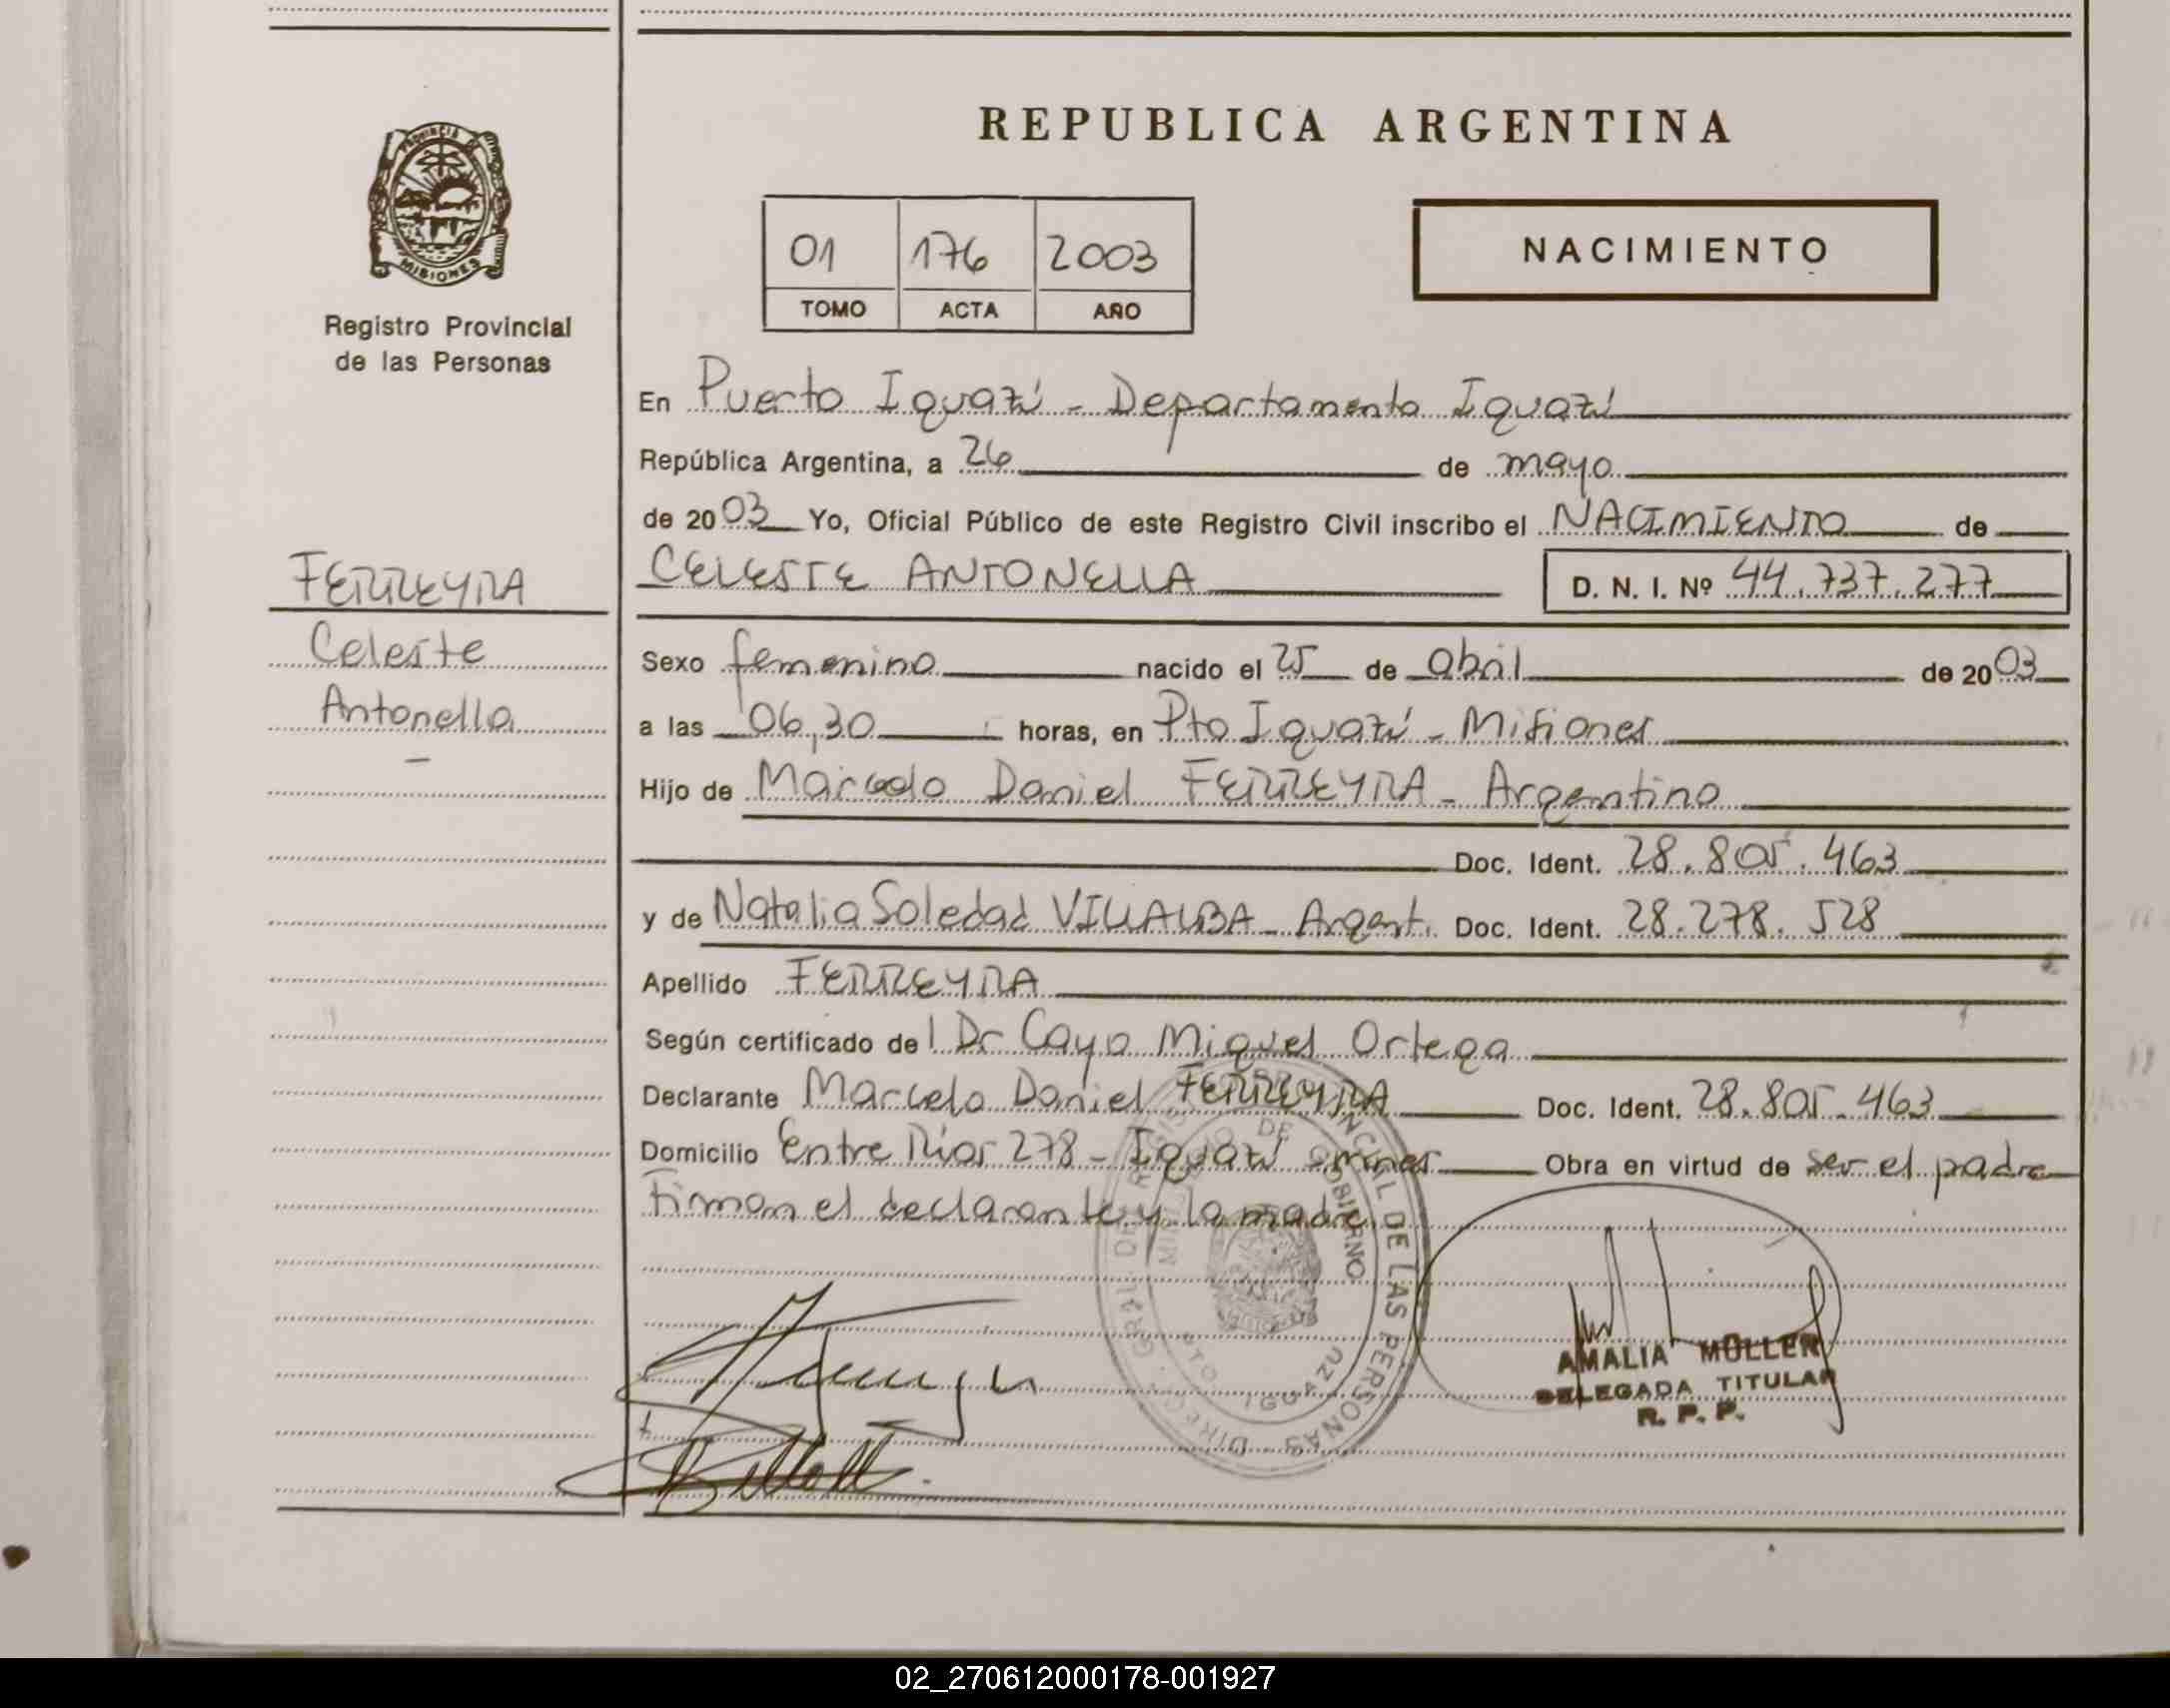 REPUBLICA ARGENTINA
PROVINCIA DE
MISIONES
Registro Provincial
de las Personas
01 176 2003
TOMO ACTA AÑO
NACIMIENTO
En Puerto Iguazú - Departamento Iguazú
República Argentina, a 26 de mayo
de 2003 Yo, Oficial Público de este Registro Civil inscribo el NACIMIENTO de
CELESTE ANTONELLA D. N. I. Nº 44.737.277
FERREYRA
Celeste
Antonella
-
Sexo femenino nacido el 25 de abril de 2003
a las 06,30 horas, en Pto Iguazú - Misiones
Hijo de Marcelo Daniel FERREYRA - Argentino
Doc. Ident. 28.805.463
y de Natalia Soledad VILLALBA - Argent. Doc. Ident. 28.278.528
Apellido FERREYRA
Según certificado de l Dr Cayo Miguel Ortega
Declarante Marcelo Daniel FERREYRA Doc. Ident. 28.805.463
Domicilio Entre Rios 278 - Iguazú Obra en virtud de ser el padre
Firman el declarante y la madre
DIREC. GRAL. DEL REGISTRO PROVINCIAL DE LAS PERSONAS
MINISTERIO DE GOBIERNO
PTO IGUAZU
AMALIA MÜLLER
DELEGADA TITULAR
R. P. P.
02_270612000178-001927